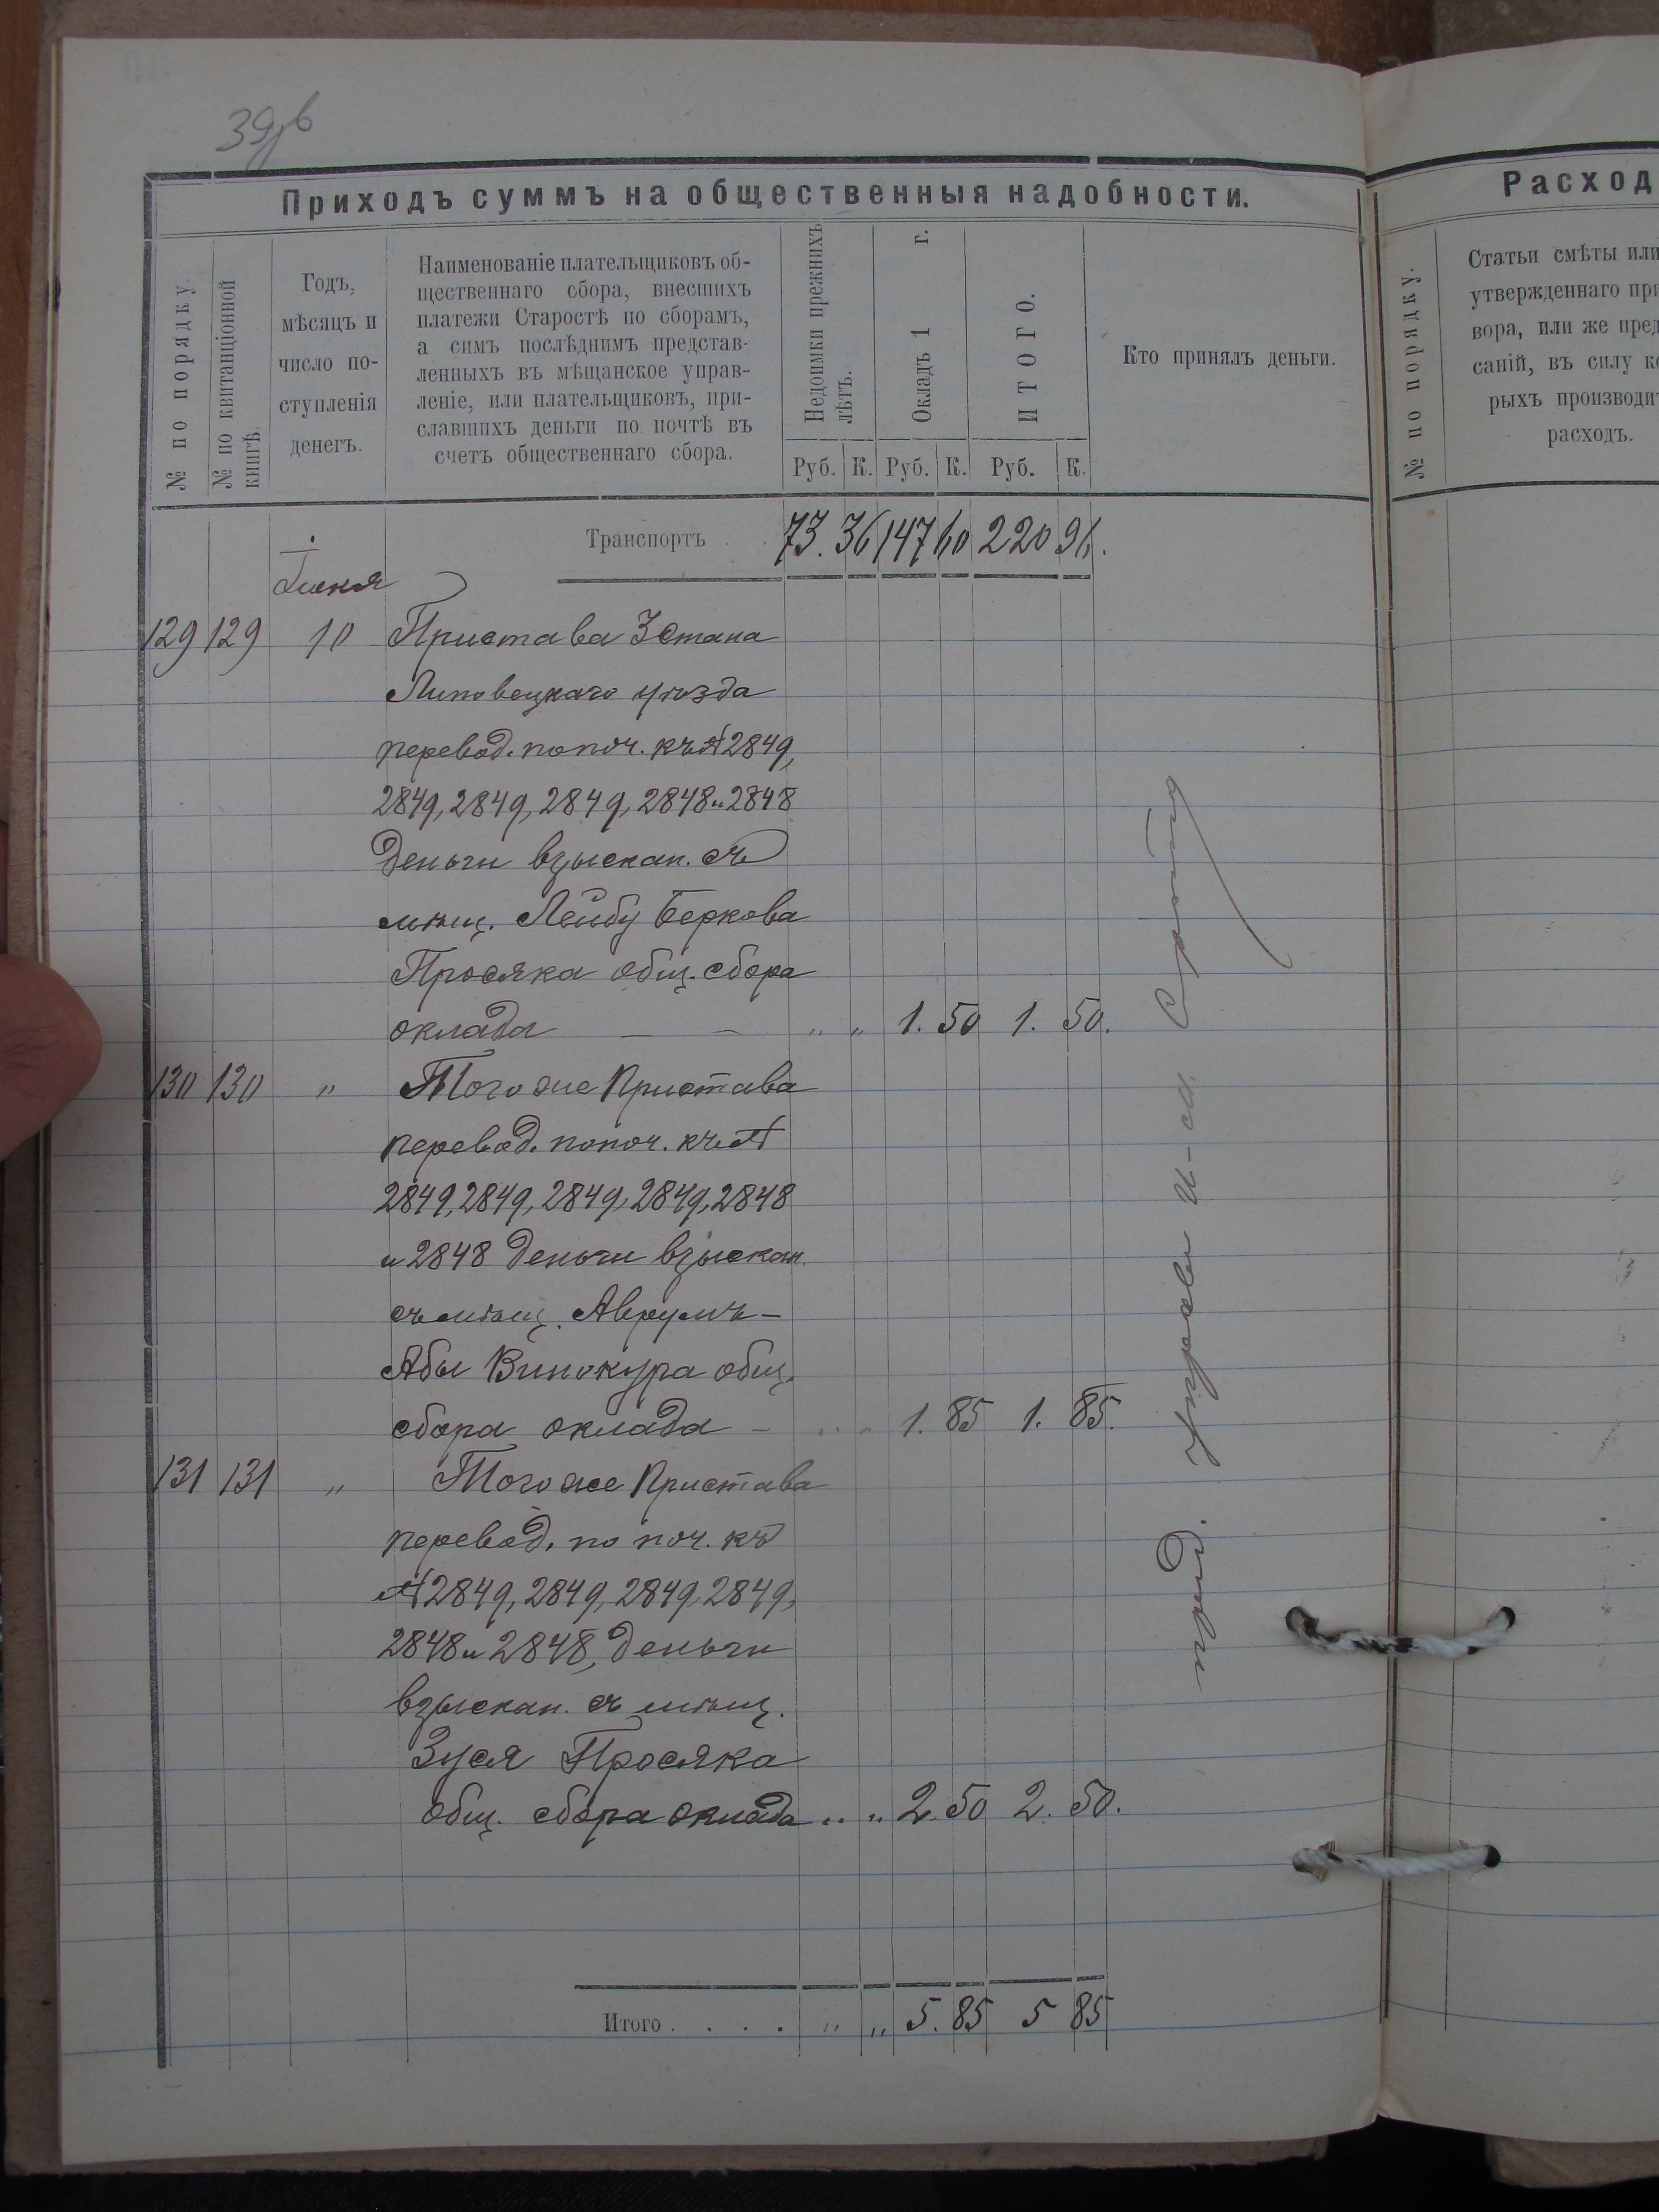 39
Приходъ суммъ на общественныя надобности.
№ по порядку.
№ по квитанціонной книгѣ.
Годъ, мѣсяцъ и число поступленія денегъ.
Наименованіе плательщиковъ об-
щественнаго сбора, внесшихъ
платежи Старостѣ по сборамъ,
а симъ послѣднимъ представ-
ленныхъ въ мѣщанское управ-
леніе, или плательщиковъ, при-
славшихъ деньги по почтѣ въ
счетъ общественнаго сбора.
Недоимки прежнихъ лѣтъ.
Окладъ 1 г.
ИТОГО.
Кто принялъ деньги.
Руб. К. Руб. К. Руб. К.
Транспортъ 73. 36 147 60 220 96.
129 129 10 Пристава 3 Стана
Липовецкаго уѣзда
перевод. по поч. къ № 2849,
2849, 2849, 2849, 2848 и 2848
деньги взыскан. съ
мѣщ. Лейбу Беркова
Просяка общ. сбора
оклада — — " " 1. 50 1. 50.
130 130 " Того же Пристава
перевод. по поч. къ №
2849, 2849, 2849, 2849, 2848
и 2848 деньги взыскан.
съ мѣщ. Аврумъ-
Абы Винокура общ.
сбора оклада — " " 1. 85 1. 85.
131 131 " Того же Пристава
перевод. по поч. къ
№ 2849, 2849, 2849, 2849,
2848 и 2848, деньги
взыскан. съ мѣщ.
Зуся Просяка
общ. сбора оклада " " 2. 50 2. 50.
Итого . . . . " " 5. 85 5 85
Расход
№ по порядку.
Статьи смѣты или
утвержденнаго при
вора, или же пред
саній, въ силу ко
рыхъ производит
расходъ.